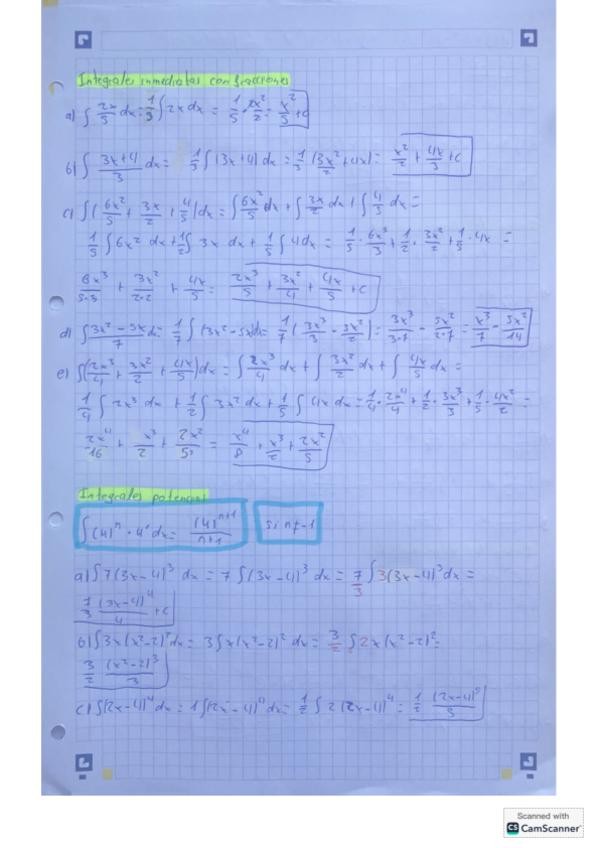 Integrales inmediatas con fracciones
a) ∫ 2x/5 dx = 1/5 ∫ 2x dx = 1/5 · 2x²/2 = x²/5 + c
b) ∫ (3x+4)/3 dx = 1/3 ∫ (3x+4) dx = 1/3 (3x²/2 + 4x) = x²/2 + 4x/3 + c
c) ∫ (6x²/5 + 3x/2 + 4/5) dx = ∫ 6x²/5 dx + ∫ 3x/2 dx + ∫ 4/5 dx =
1/5 ∫ 6x² dx + 1/2 ∫ 3x dx + 1/5 ∫ 4 dx = 1/5 · 6x³/3 + 1/2 · 3x²/2 + 1/5 · 4x =
6x³/5·3 + 3x²/2·2 + 4x/5 = 2x³/5 + 3x²/4 + 4x/5 + c
d) ∫ (3x² - 5x)/7 dx = 1/7 ∫ (3x² - 5x) dx = 1/7 (3x³/3 - 5x²/2) = 3x³/3·7 - 5x²/2·7 = x³/7 - 5x²/14
e) ∫ (2x³/4 + 3x²/2 + 4x/5) dx = ∫ 2x³/4 dx + ∫ 3x²/2 dx + ∫ 4x/5 dx =
1/4 ∫ 2x³ dx + 1/2 ∫ 3x² dx + 1/5 ∫ 4x dx = 1/4 · 2x⁴/4 + 1/2 · 3x³/3 + 1/5 · 4x²/2 =
2x⁴/16 + x³/2 + 2x²/5 = x⁴/8 + x³/2 + 2x²/5
Integrales potencias
∫ (u)ⁿ · u' dx = (u)ⁿ⁺¹/n+1 si n≠-1
a) ∫ 7(3x-4)³ dx = 7 ∫ (3x-4)³ dx = 7/3 ∫ 3(3x-4)³ dx =
7/3 (3x-4)⁴/4 + c
b) ∫ 3x(x²-2)² dx = 3 ∫ x(x²-2)² dx = 3/2 ∫ 2x(x²-2)² =
3/2 (x²-2)³/3
c) ∫ (2x-4)⁴ dx = 1 ∫ (2x-4)⁴ dx = 1/2 ∫ 2(2x-4)⁴ = 1/2 (2x-4)⁵/5
Scanned with
CS CamScanner